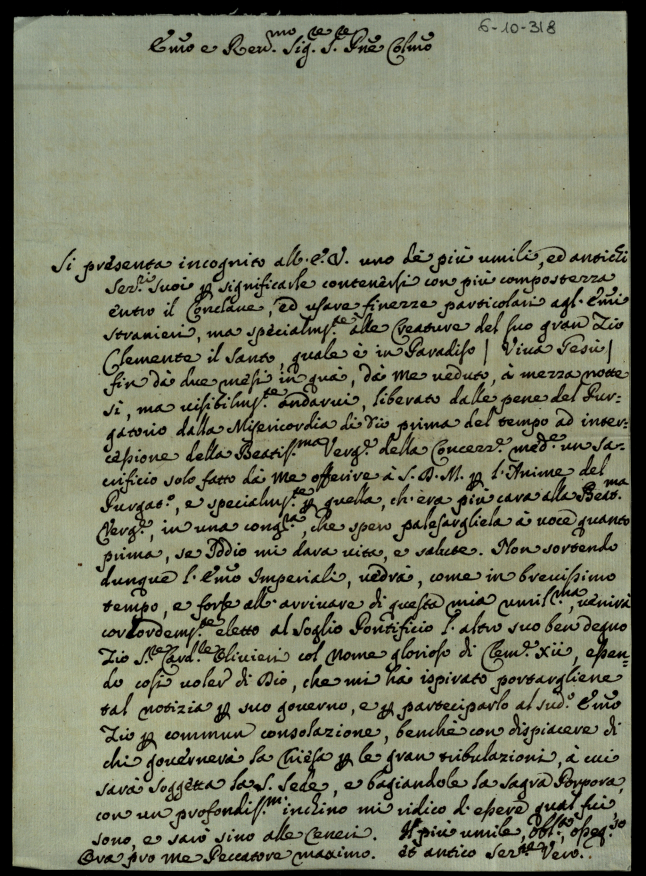 6-10-318
Emo e Rev.mo Sig.re S.re Pne Colmo
Si presenta incognito all'E.V. uno de più umili, ed antichi
Ser.ri suoi p significarle contenersi con più compostezza
entro il Conclave, ed usare finezze particolari agl'Emi
stranieri, ma specialm.te alle Creature del suo gran Zio
Clemente il Santo, quale è in Paradiso | Viva Gesù |
fin dà due mesi in quà, dà me veduto, à mezza notte
sì, ma visibilm.te andarvi, liberato dalle pene del Pur-
gatorio dalla Misericordia di Dio prima del tempo ad inter-
cessione della Beatiss.ma Verg.e della Concezz.e med.e un Sa-
crificio solo fatto dà me offerire à S.D.M. p l'Anime del
Purgat.o, e specialm.te p quella, ch'era più cara alla Beat.ma
Verg.e, in una cong.ra, che spero palesargliela à voce quanto
prima, se Iddio mi darà vita, e salute. Non sortendo
dunque l'Emo Imperiali, vedrà, come in brevissimo
tempo, e forse all'arrivare di questa mia umil.ma, venirà
concordem.te eletto al Soglio Pontificio l'altro suo ben degno
Zio S.re Card.le Olivieri col Nome glorioso di Clem.e XII, essen-
do così voler di Dio, che mi hà ispirato portargliene
tal notizia p suo governo, e p parteciparlo al sud.o Emo
Zio p commun consolazione, benchè con dispiacere di
chi governerà la Chiesa p le gran tribulazioni, à cui
sarà soggetta la S. Sede, e bagiandole la sagra Porpora,
con un profondiss.mo inchino mi ridico d'essere qual fui,
sono, e sarò sino alle ceneri. Il più umile, obbl.to, osseq.so
Ora pro me Peccatore maximo. et antico Ser.re Vero.